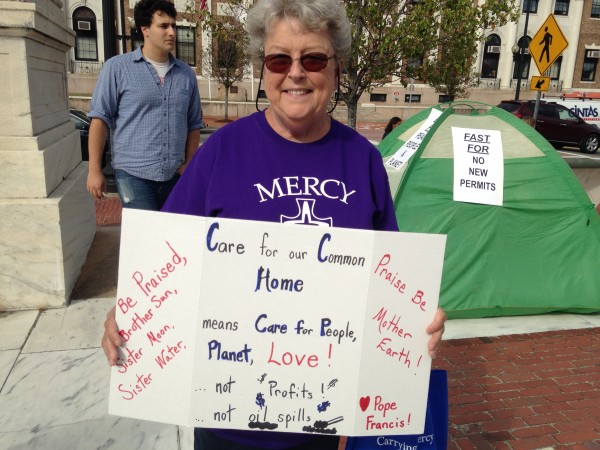 CINTAS
FAST
FOR
NO
NEW
PERMITS
MERCY
Be Praised,
Brother Sun,
Sister Moon,
Sister Water,
Care for our Common
Home
means Care for People,
Planet, Love!
... not $ Profits! $
... not oil spills
Praise Be
Mother
Earth!
Pope
Francis!
Carrying Mercy